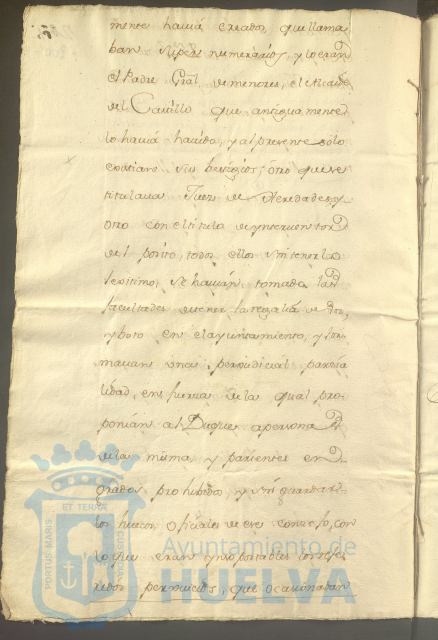 mente havia creados, que llama
ban supernumerarios, y lo eran
el Padre Gral de menores, el Alcaide
del Castillo que antiguamente
lo havia havido, y al presente solo
existian sus vestigios; otro que se
titulava Juez de Heredades, y
otro con el titulo de ynterventor
del posito, todos ellos sin tener
lexitimo, se havian tomado las
facultades de tener la regalia de voz,
y boto en el ayuntamiento, y for
mavan una perjudicial parzia
lidad, en fuerza de la qual pro
ponian al Duque a personas
de la misma, y parientes en
grados prohividos, y sin guardar
los huecos, oficiales de ese consejo, con
lo que eran ynsoportables los refe
ridos perjuicios, que ocasionaban
PORTUS MARIS ET TERRAE CUSTODIA
Ayuntamiento de
HUELVA